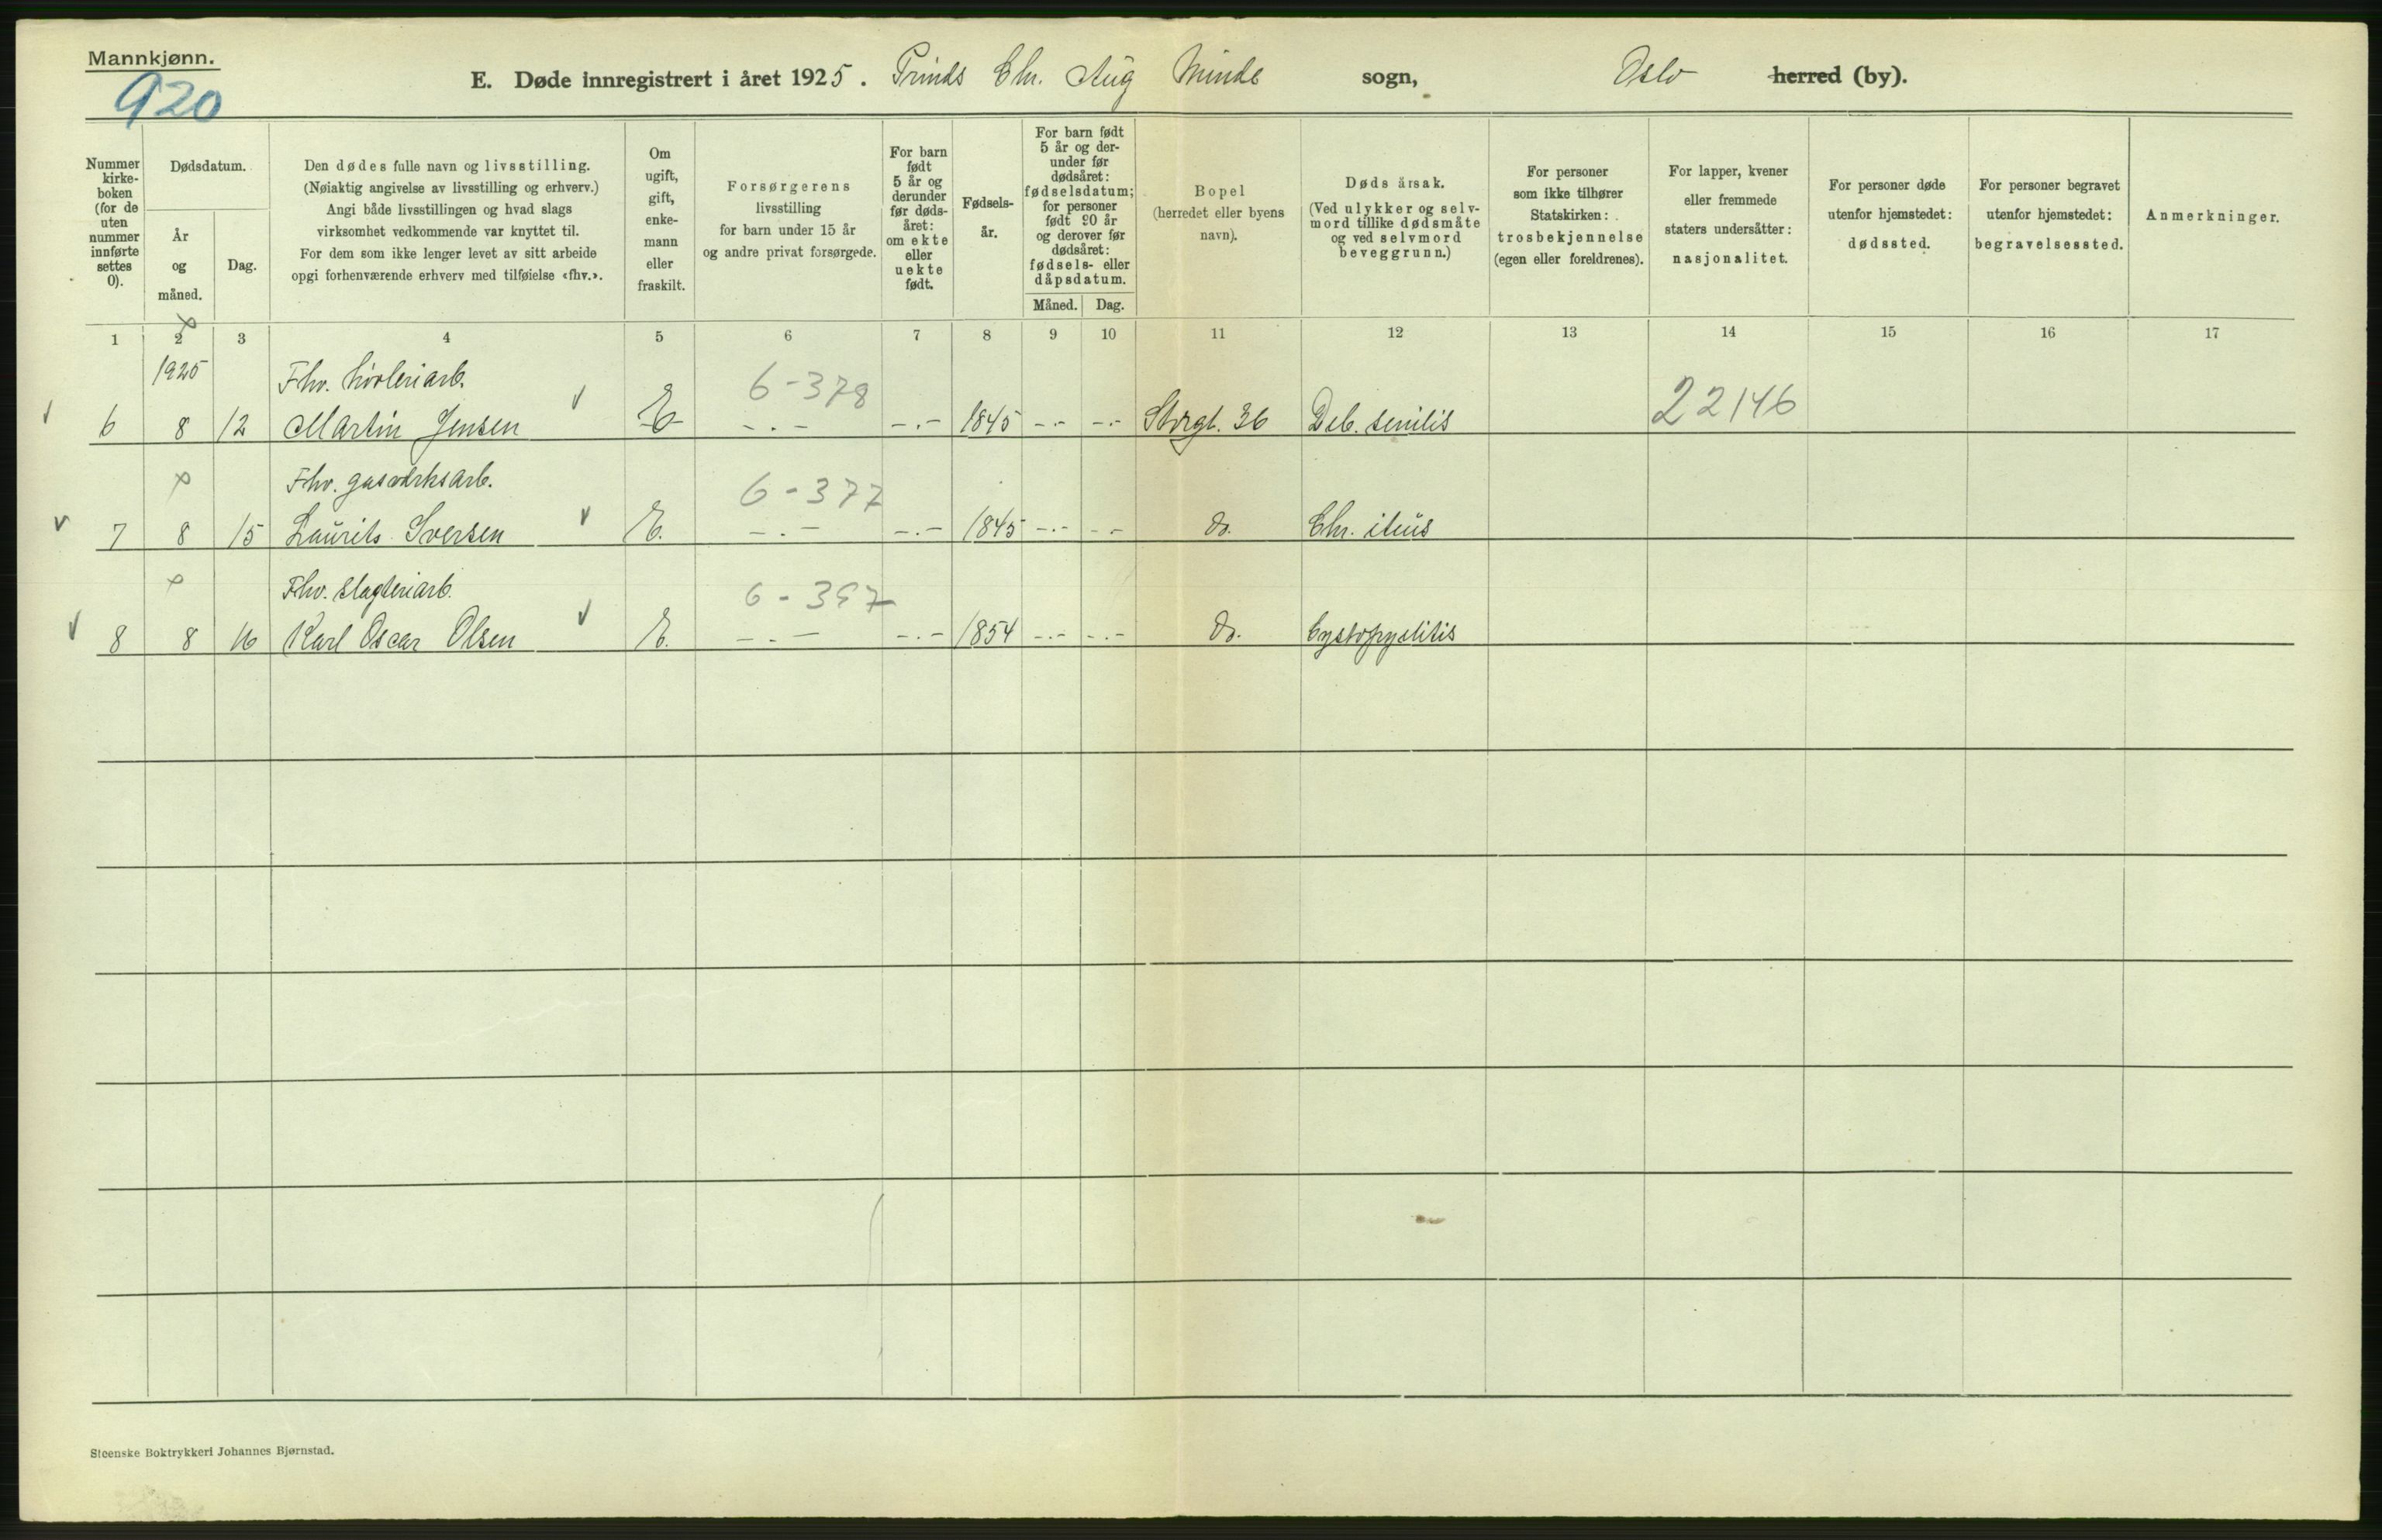 Mannkjønn.
920
E. Døde innregistrert i året 1925. Prinds Chr. Aug Minde sogn, Oslo herred (by).
Nummer
kirke-
boken
(for de
uten
nummer
innførte
settes
0).
Dødsdatum.
År
og
måned.
Dag.
Den dødes fulle navn og livsstilling.
(Nøiaktig angivelse av livsstilling og erhverv.)
Angi både livsstillingen og hvad slags
virksomhet vedkommende var knyttet til.
For dem som ikke lenger levet av sitt arbeide
opgi forhenværende erhverv med tilføielse «fhv.».
Om
ugift,
gift,
enke-
mann
eller
fraskilt.
Forsørgerens
livsstilling
for barn under 15 år
og andre privat forsørgede.
For barn
født
5 år og
derunder
før døds-
året:
om ekte
eller
uekte
født.
Fødsels-
år.
For barn født
5 år og der-
under før
dødsåret:
fødselsdatum;
for personer
født 20 år
og derover før
dødsåret:
fødsels- eller
dåpsdatum.
Måned. Dag.
Bopel
(herredet eller byens
navn).
Dødsårsak.
(Ved ulykker og selv-
mord tillike dødsmåte
og ved selvmord
beveggrunn.)
For personer
som ikke tilhører
Statskirken:
trosbekjennelse
(egen eller foreldrenes).
For lapper, kvener
eller fremmede
staters undersåtter:
nasjonalitet.
For personer døde
utenfor hjemstedet:
dødssted.
For personer begravet
utenfor hjemstedet:
begravelsessted.
Anmerkninger.
1 2 3 4 5 6 7 8 9 10 11 12 13 14 15 16 17
1925 Fhv. høvleriarb. 6-378
6 8 12 Martin Jensen E -.- -.- 1845 -.- -.- Storgt. 36 Deb. senilis 22146
Fhv. gasverksarb. 6-377
7 8 15 Laurits Iversen E. -.- -.- 1845 -.- -.- do.
Fhv. slagteriarb. 6-397
8 8 16 Karl Oscar Olsen E. -.- -.- 1854 -.- -.- do. Cystopyelitis
Steenske Boktrykkeri Johannes Bjørnstad.